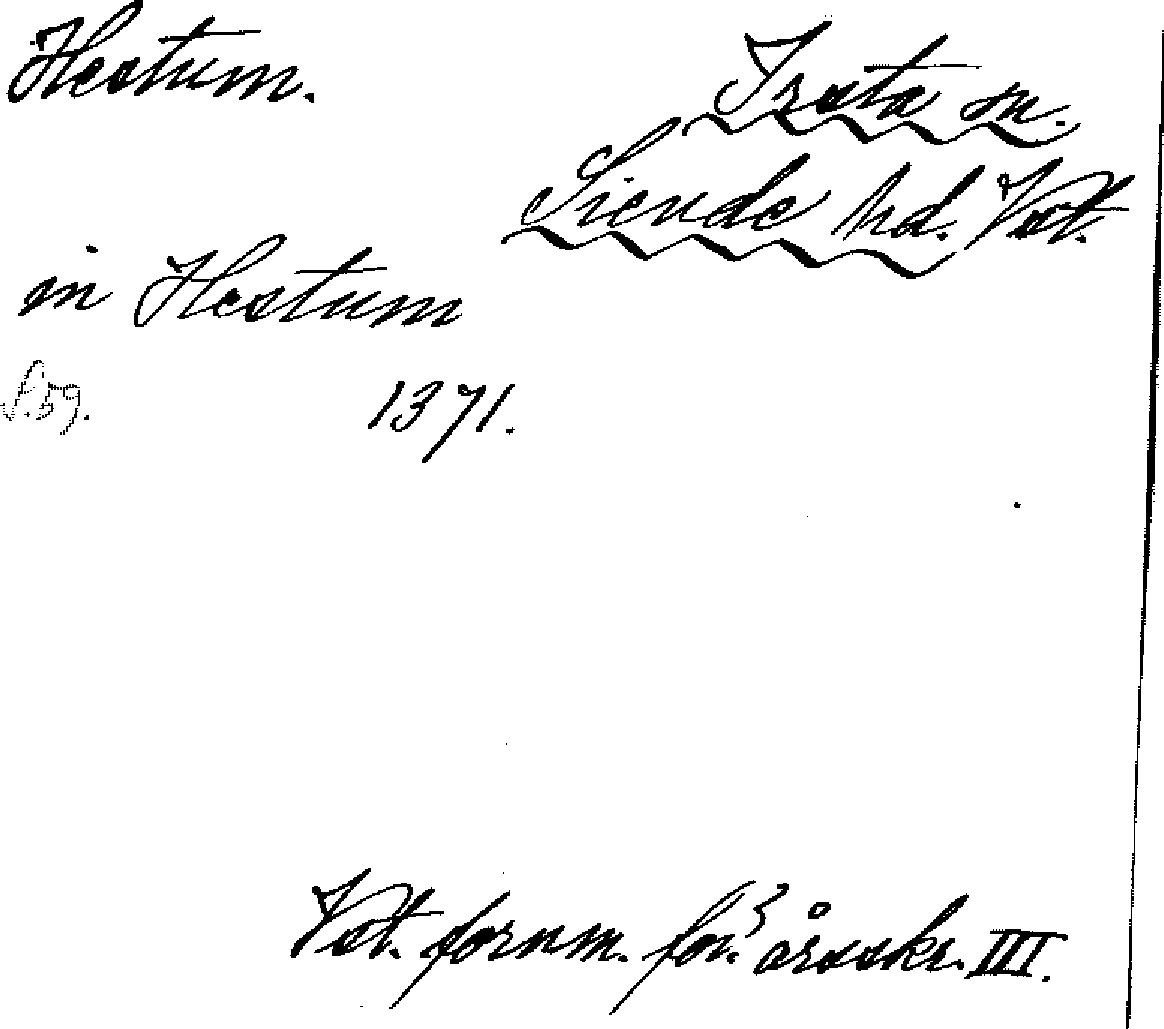 Hestum.
Irsta sn.
Siende hd. Vst.
in Hestum
S. 59.
1371.
Vst. fornm. för:s årsskr. III.